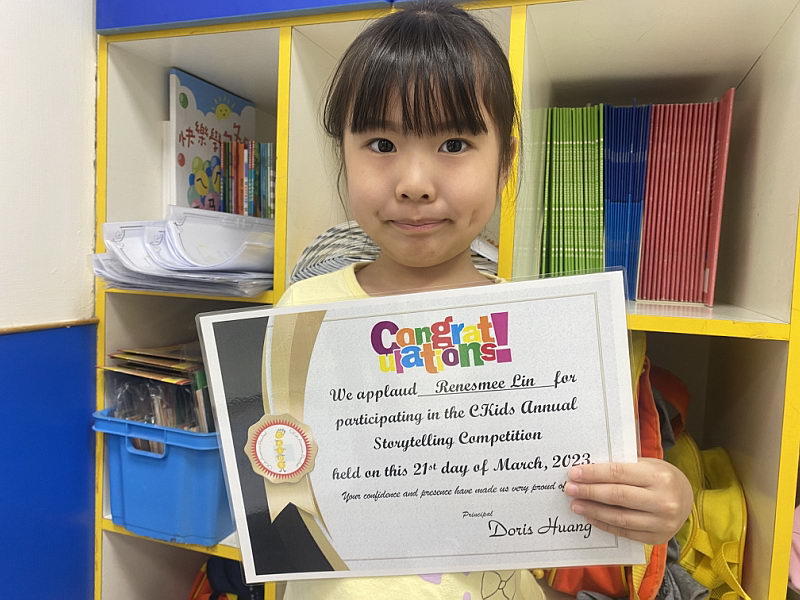 快樂學
Congrat!
ulations!
We applaud Renesmee Lin for
participating in the CKids Annual
Storytelling Competition
held on this 21st day of March, 2023.
Your confidence and presence have made us very proud of
Principal
Doris Huang